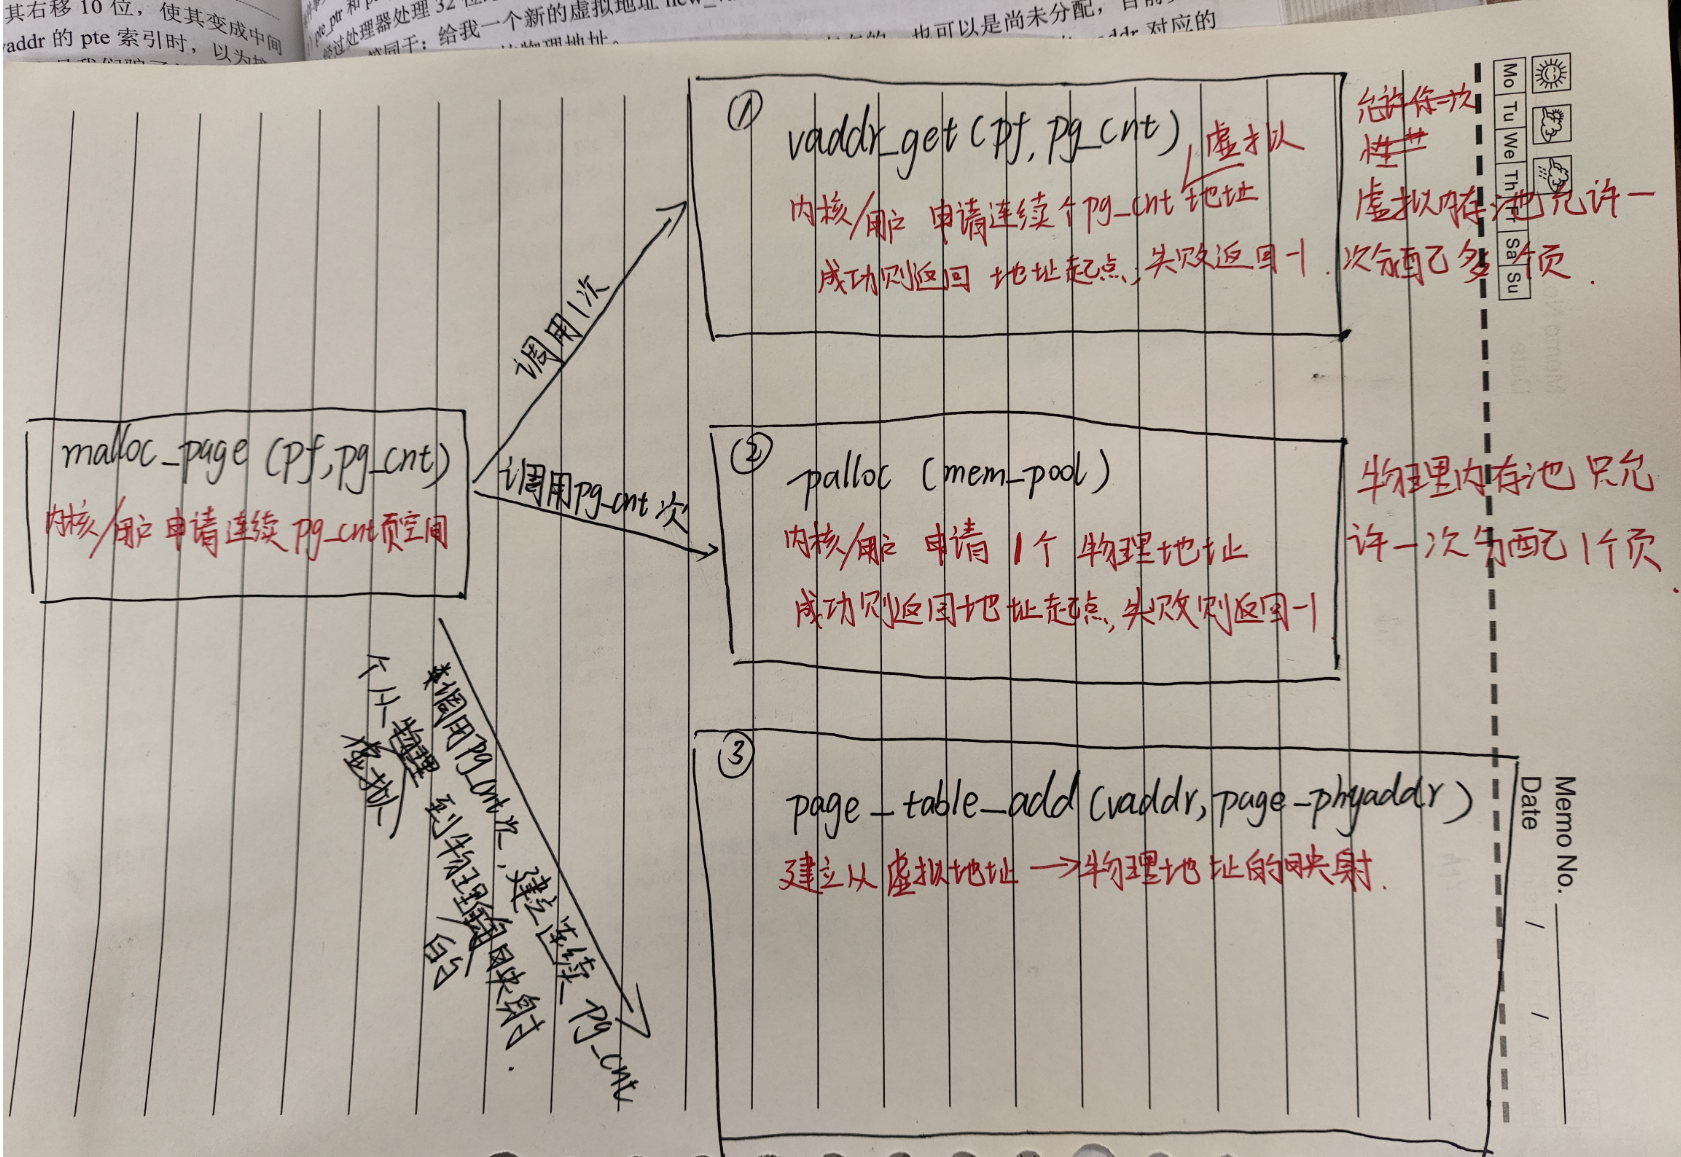 其右移 10 位，使其变成中间
vaddr 的 pte 索引时，以为
经过处理器处理 32 位
同于：给我一个新的虚拟地址
也可以是尚未分配，
对应的
①
vaddr_get (pf, pg_cnt)
虚拟
内核/用户 申请连续个pg_cnt 地址
成功则返回 地址起点，失败返回-1
允许你一次
性
虚拟内存池允许一
次分配已多个页.
调用1次
malloc_page (pf, pg_cnt)
内核/用户 申请连续 pg_cnt页空间
调用pg_cnt次
②
palloc (mem_pool)
内核/用户 申请 1个 物理地址
成功则返回地址起点，失败则返回-1
物理内存池 只允
许一次分配1个页.
调用pg_cnt次，建立连续 pg_cnt
个从物理 到物理的映射.
虚拟
的
③
page_table_add (vaddr, page_phyaddr)
建立从虚拟地址→物理地址的映射.
Mo Tu We Th Fr Sa Su
Memo No.
Date / /